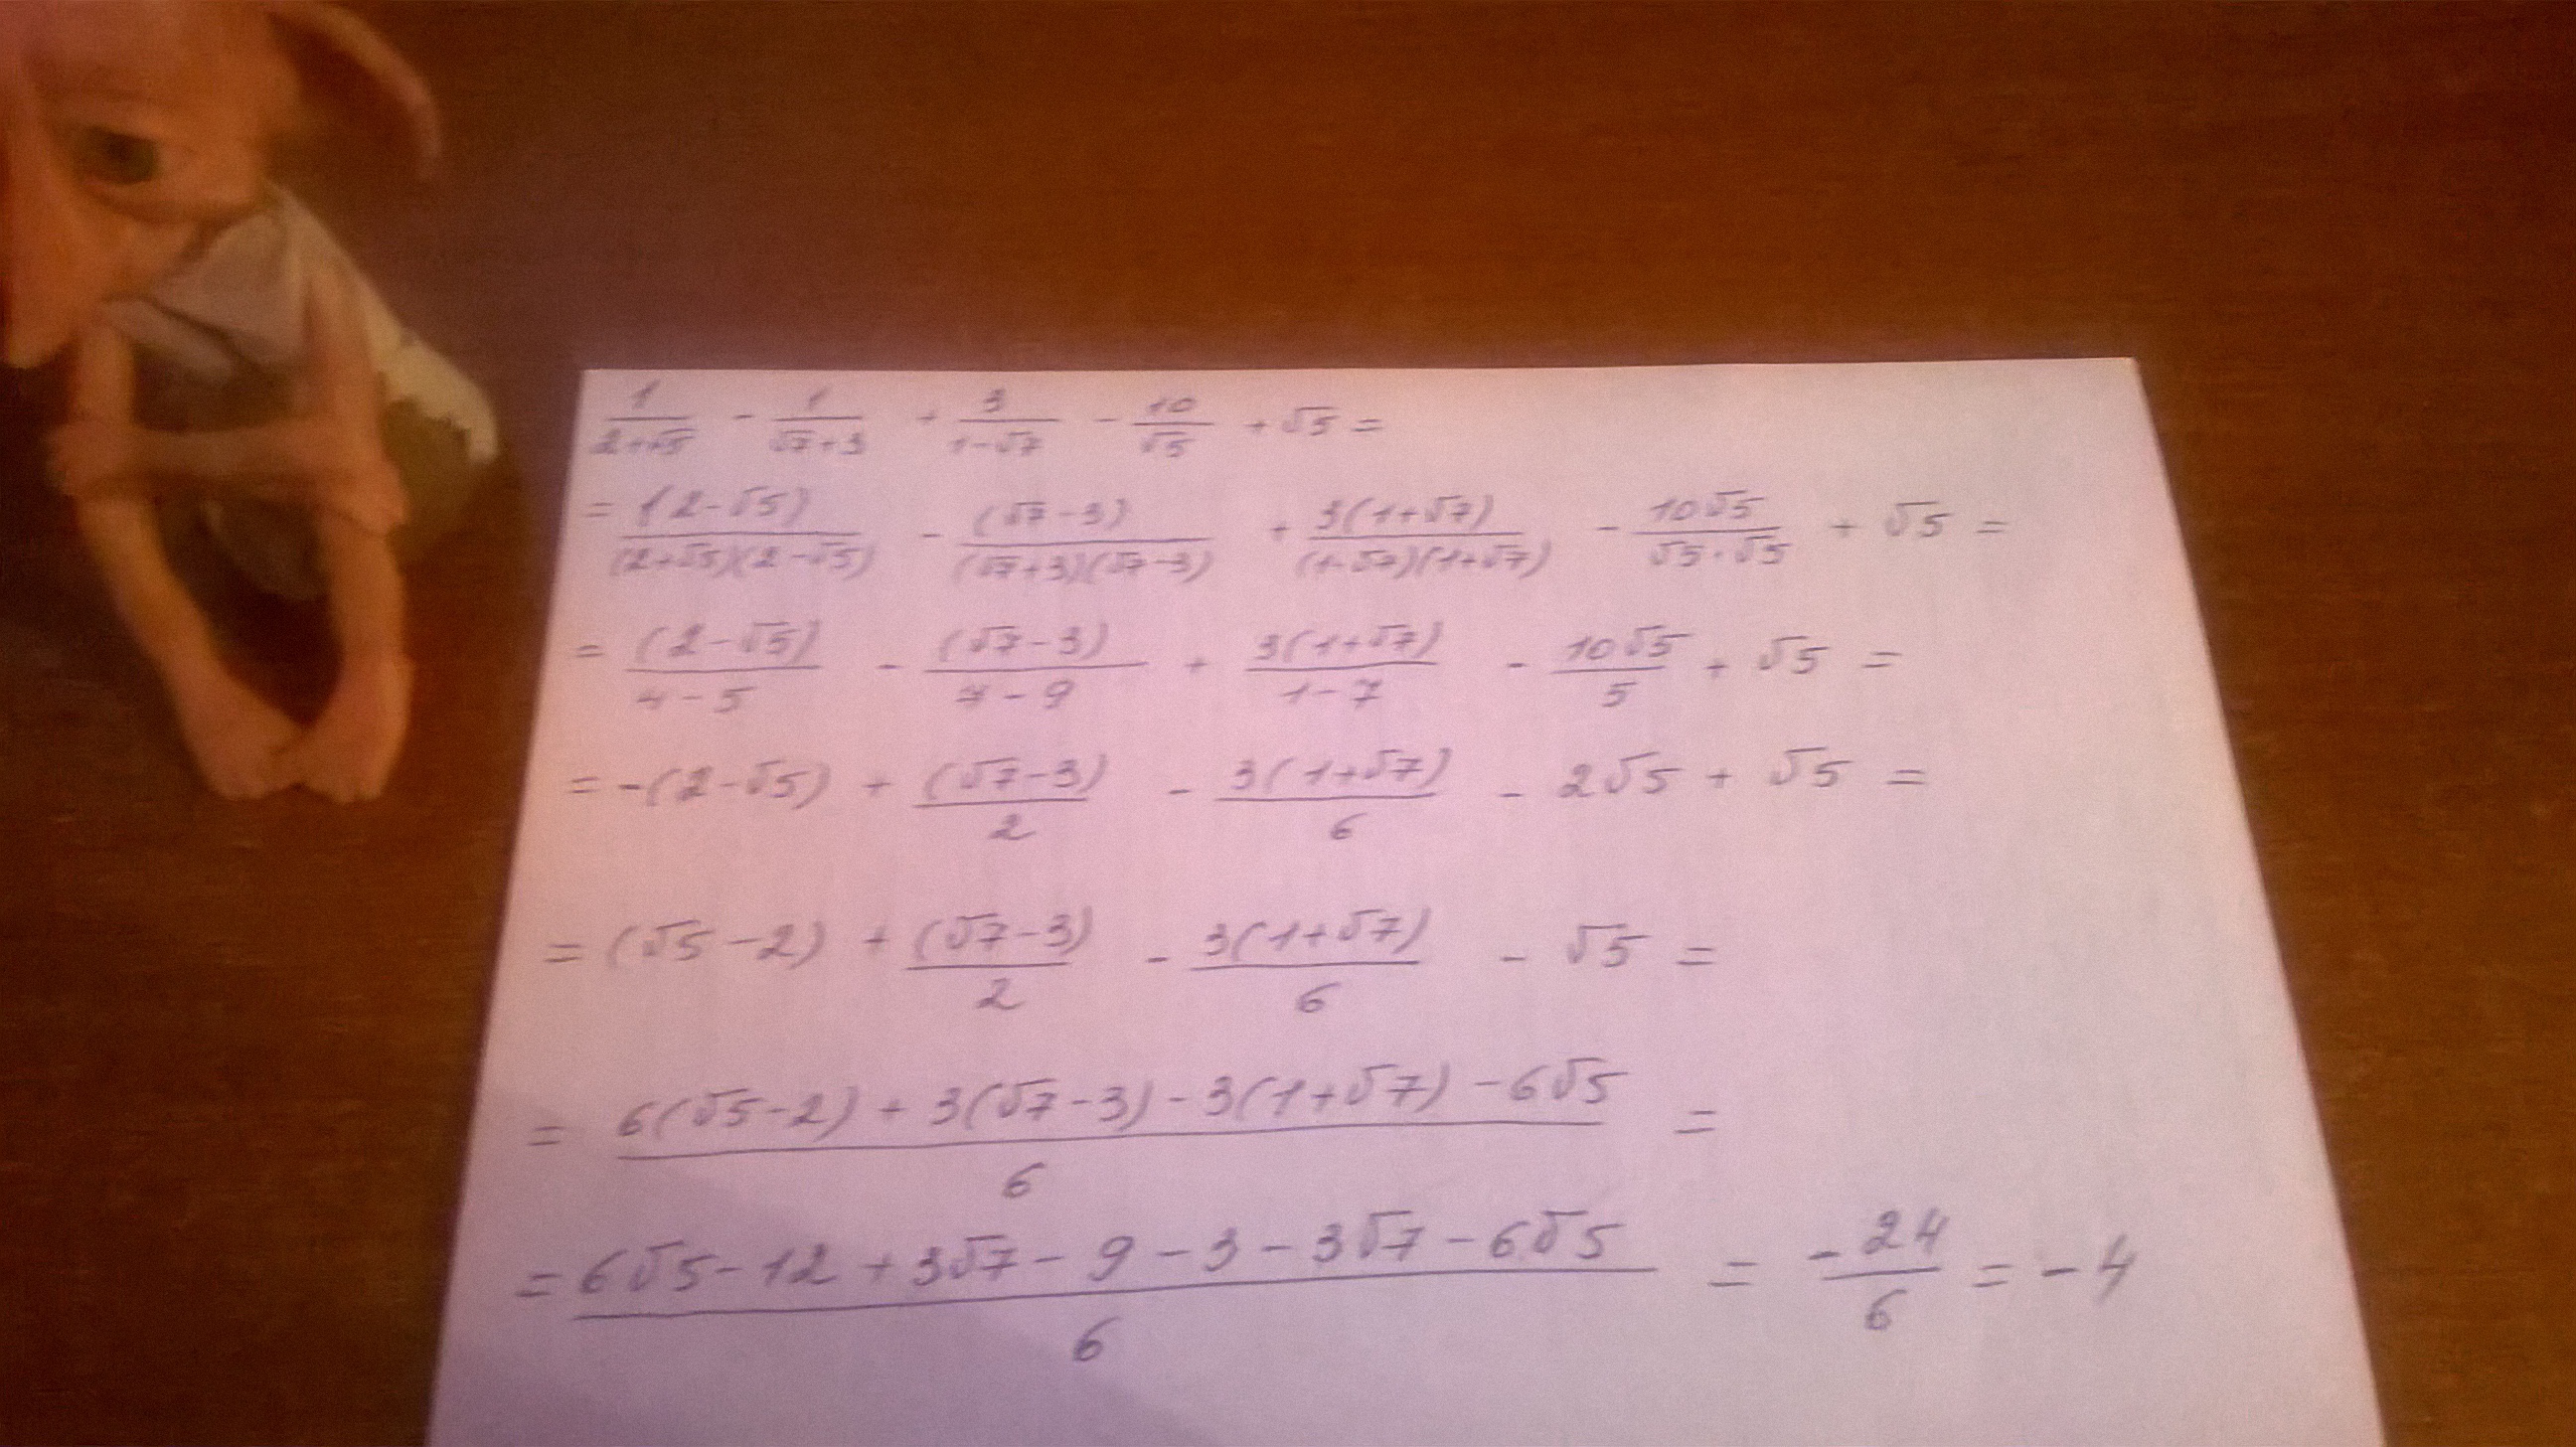 1/(2+√5) - 1/(√7+3) + 3/(1-√7) - 10/√5 + √5 =
= 1(2-√5)/((2+√5)(2-√5)) - (√7-3)/((√7+3)(√7-3)) + 3(1+√7)/((1-√7)(1+√7)) - 10√5/(√5·√5) + √5 =
= (2-√5)/(4-5) - (√7-3)/(7-9) + 3(1+√7)/(1-7) - 10√5/5 + √5 =
= -(2-√5) + (√7-3)/2 - 3(1+√7)/6 - 2√5 + √5 =
= (√5-2) + (√7-3)/2 - 3(1+√7)/6 - √5 =
= (6(√5-2) + 3(√7-3) - 3(1+√7) - 6√5)/6 =
= (6√5 - 12 + 3√7 - 9 - 3 - 3√7 - 6√5)/6 = -24/6 = -4